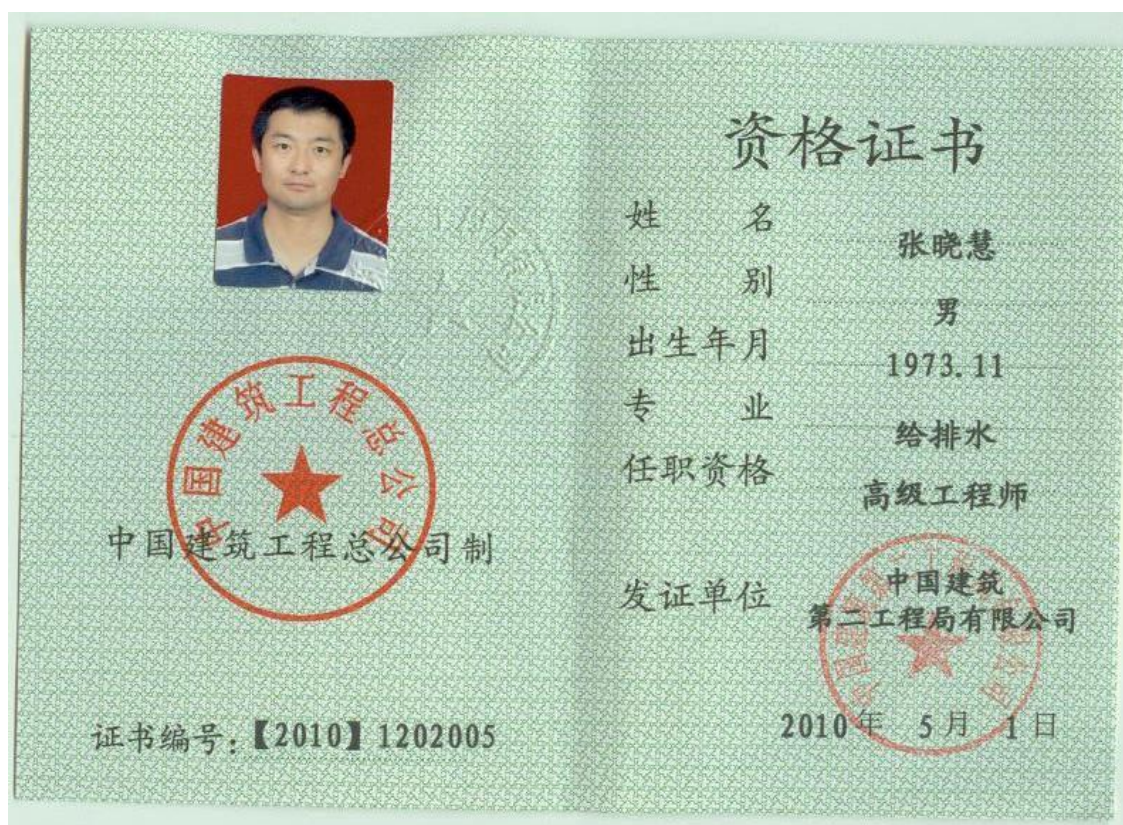 中国建筑工程总公司
中国建筑工程总公司制
证书编号：【2010】1202005
资格证书
姓 名 张晓慧
性 别 男
出生年月 1973.11
专 业 给排水
任职资格 高级工程师
发证单位 中国建筑
第二工程局有限公司
2010年 5月 1日